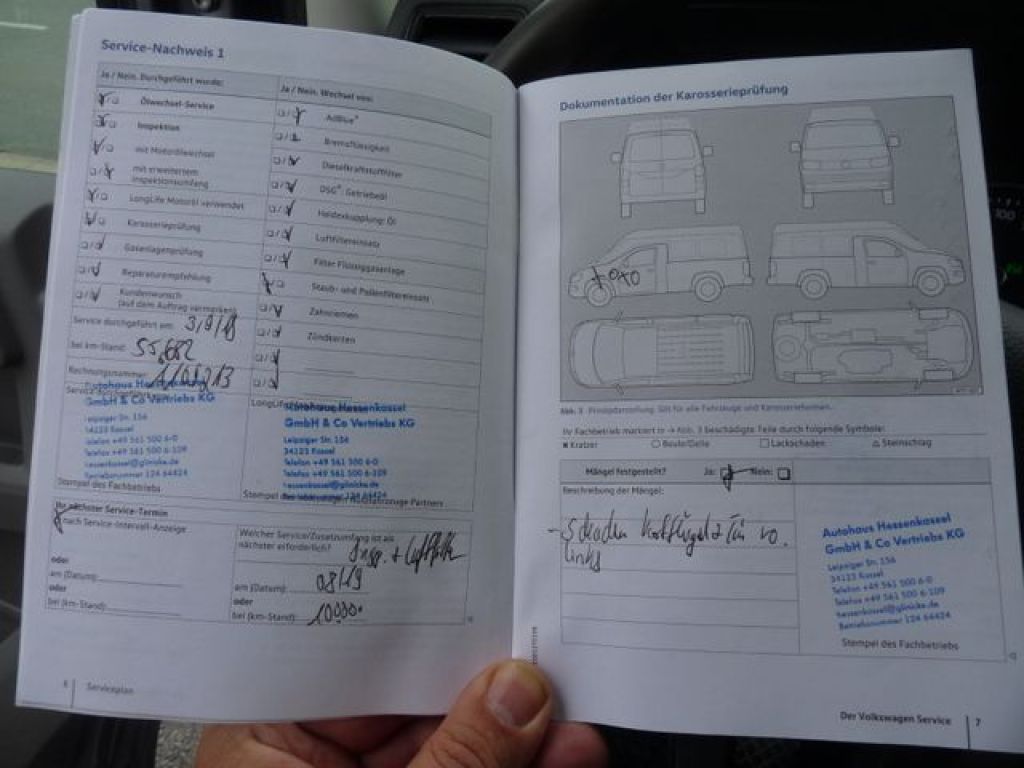 Service-Nachweis 1
Ja / Nein. Durchgeführt wurde:
Ölwechsel-Service
Inspektion
mit Motorölwechsel
mit erweitertem
Inspektionsumfang
LongLife Motoröl verwendet
Karosserieprüfung
Gasanlagenprüfung
Reparaturempfehlung
Kundenwunsch
(auf dem Auftrag vermerken)
Service durchgeführt am: 3/9/18
bei km-Stand: 55.682
Rechnungsnummer:
Autohaus Hessenkassel
GmbH & Co Vertriebs KG
Leipziger Str. 156
34123 Kassel
Telefon +49 561 500 6-0
Telefax +49 561 500 6-109
hessenkassel@glinicke.de
Betriebsnummer 124 64424
Stempel des Fachbetriebs
Ja / Nein. Wechsel von:
AdBlue®
Bremsflüssigkeit
Dieselkraftstofffilter
DSG®: Getriebeöl
Haldexkupplung: Öl
Luftfiltereinsatz
Filter Flüssiggasanlage
Staub- und Pollenfiltereinsatz
Zahnriemen
Zündkerzen
Autohaus Hessenkassel
GmbH & Co Vertriebs KG
Leipziger Str. 156
34123 Kassel
Telefon +49 561 500 6-0
Telefax +49 561 500 6-109
hessenkassel@glinicke.de
Ihr nächster Service-Termin
nach Service-Intervall-Anzeige
oder
am (Datum):
oder
bei (km-Stand):
Welcher Service/Zusatzumfang ist als
nächster erforderlich?
Insp. + Luftfilter
am (Datum): 08/19
oder
bei (km-Stand): 10000
6 Serviceplan
Dokumentation der Karosserieprüfung
Abb. 3 Prinzipdarstellung: Gilt für alle Fahrzeuge und Karosserieformen.
Ihr Fachbetrieb markiert in → Abb. 3 beschädigte Teile durch folgende Symbole:
× Kratzer ○ Beule/Delle □ Lackschaden △ Steinschlag
Mängel festgestellt? Ja: □ Nein: □
Beschreibung der Mängel:
- Schaden Kotflügel + Tür vo.
links
Autohaus Hessenkassel
GmbH & Co Vertriebs KG
Leipziger Str. 156
34123 Kassel
Telefon +49 561 500 6-0
Telefax +49 561 500 6-109
hessenkassel@glinicke.de
Betriebsnummer 124 64424
Stempel des Fachbetriebs
Der Volkswagen Service 7
100